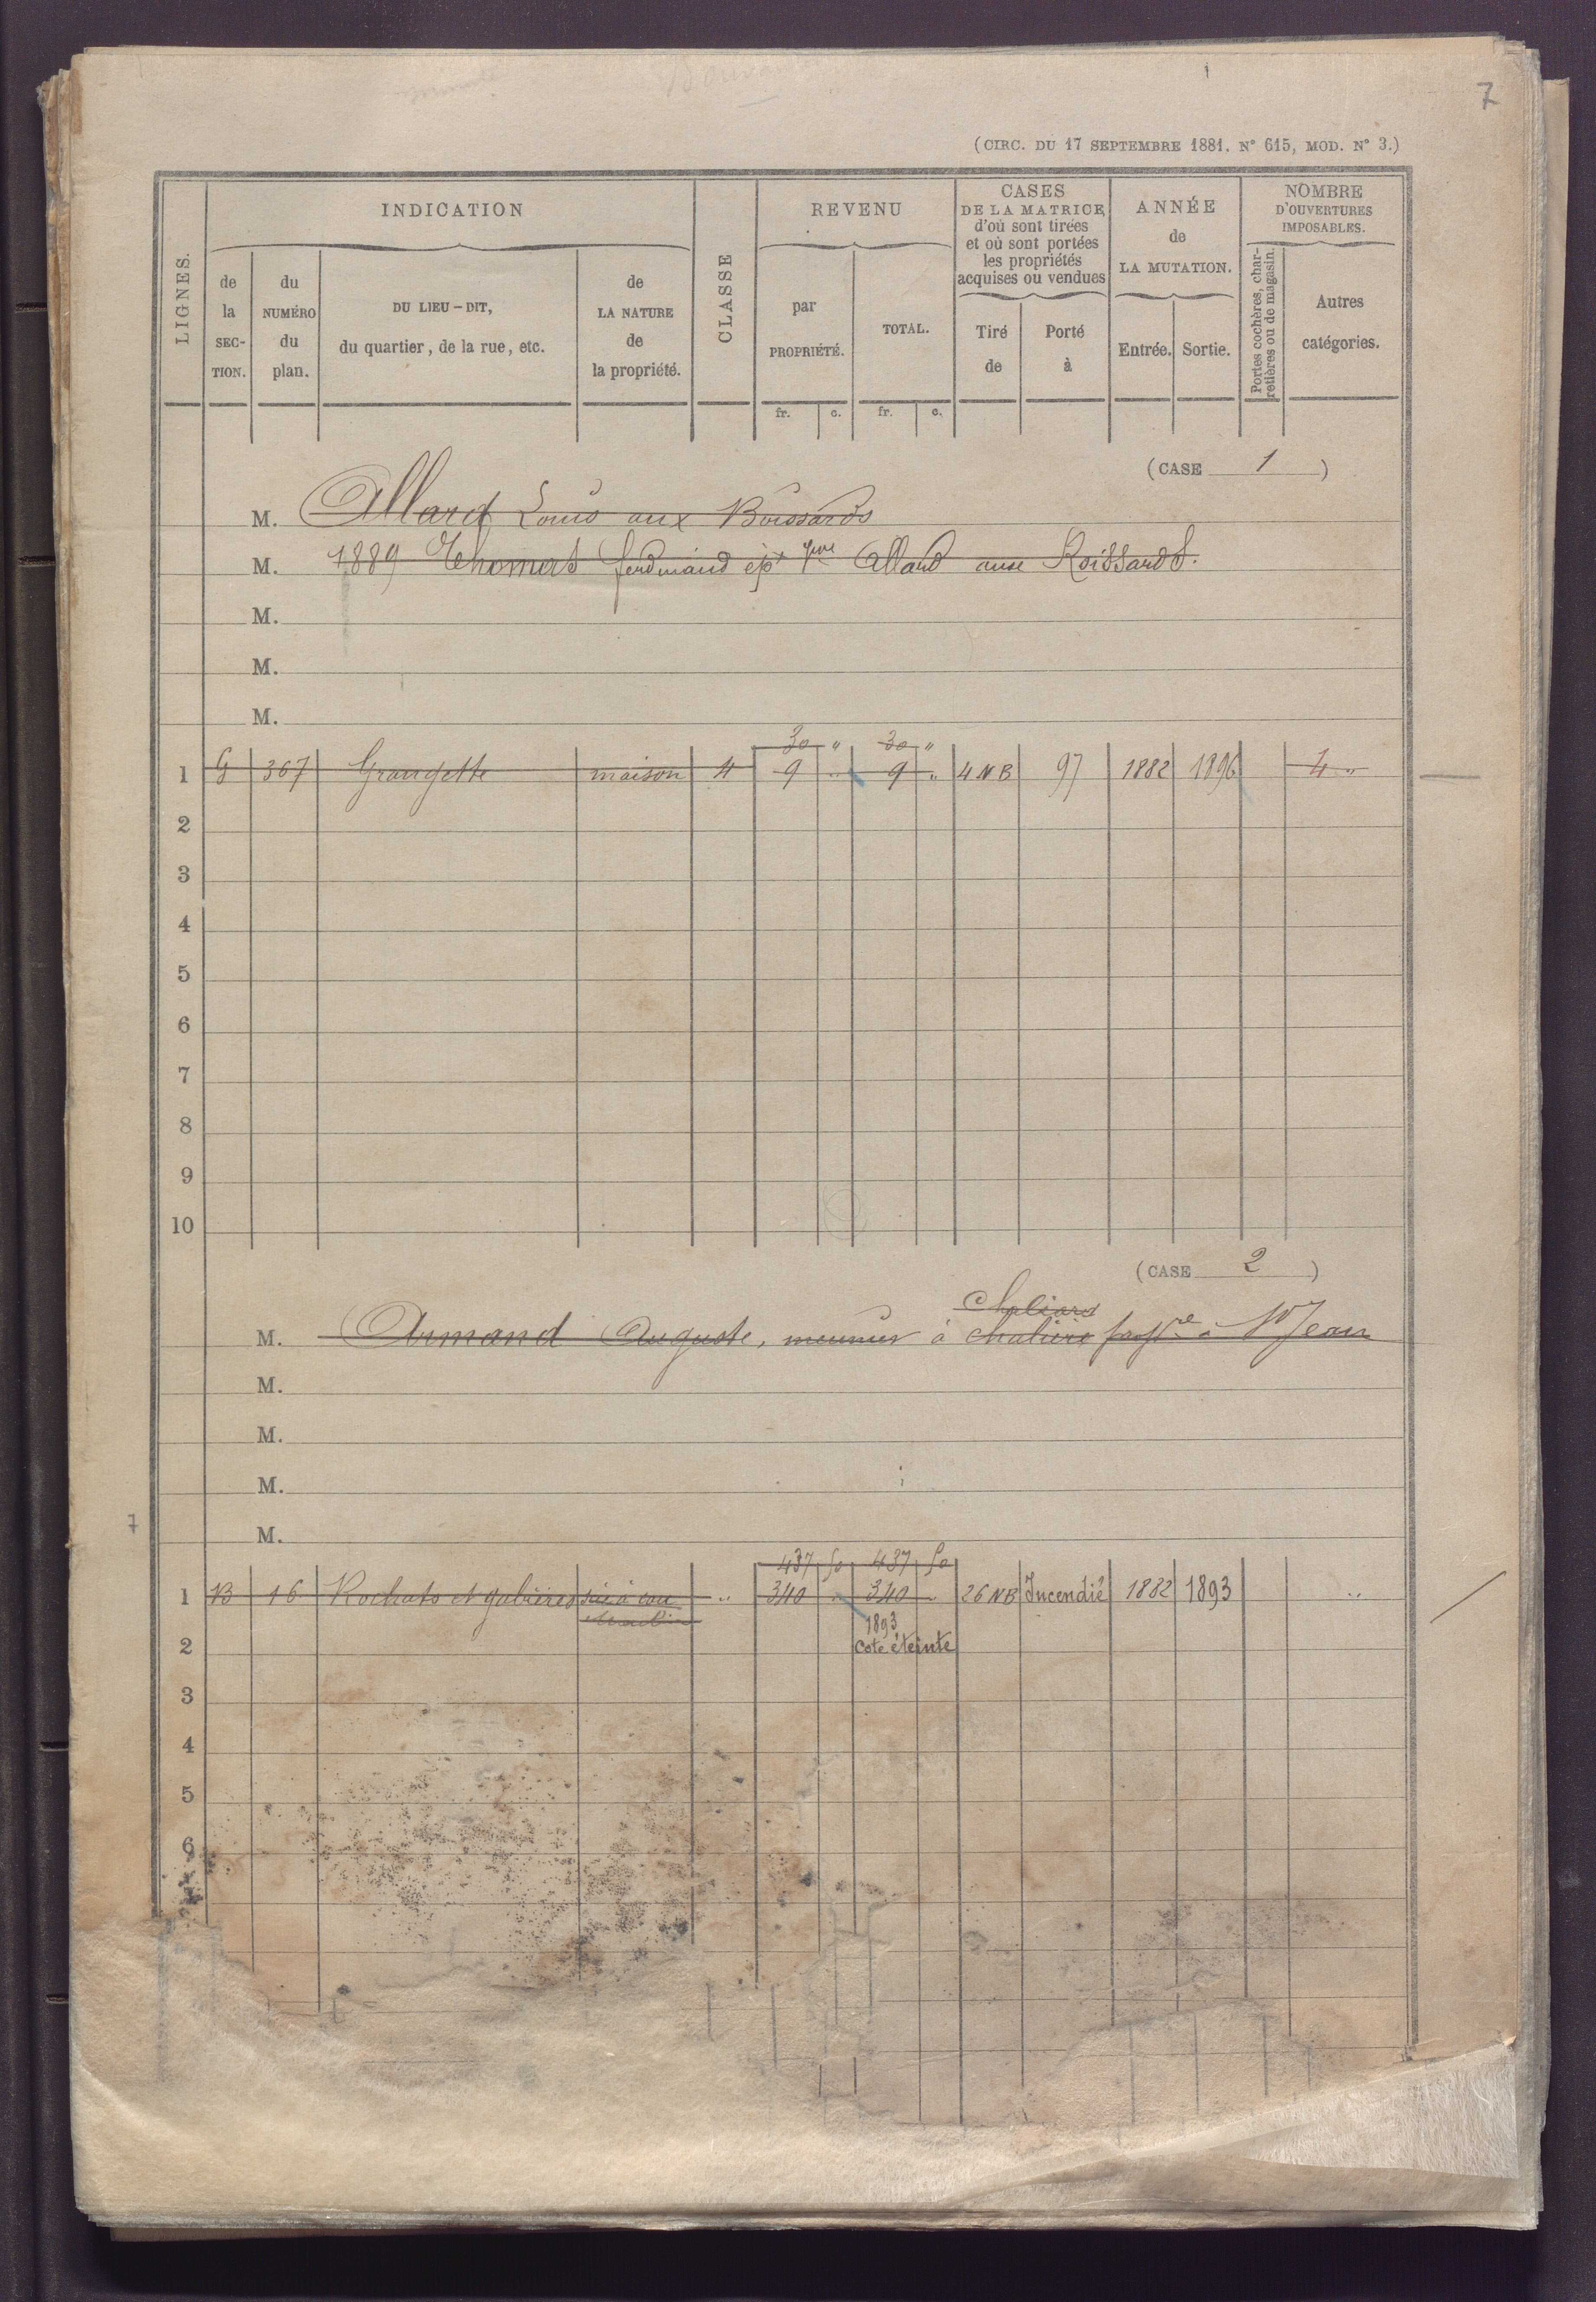 7
(CIRC. DU 17 SEPTEMBRE 1881. N° 615, MOD. N° 3.)
LIGNES.
INDICATION
de la SEC-TION.
du NUMÉRO du plan.
DU LIEU-DIT, du quartier, de la rue, etc.
de LA NATURE de la propriété.
CLASSE
REVENU
par PROPRIÉTÉ.
TOTAL.
fr. c. fr. c.
CASES DE LA MATRICE d'où sont tirées et où sont portées les propriétés acquises ou vendues
Tiré de
Porté à
ANNÉE de LA MUTATION.
Entrée. Sortie.
NOMBRE D'OUVERTURES IMPOSABLES.
Portes cochères, char-retières ou de magasin.
Autres catégories.
(CASE 1)
M. Allard Louis aux Boissards
M. 1889 Thomas ferdinand ép. Allard aux Roissards.
M.
M.
M.
30 " 30 "
1 G 367 Grangette maison 4 9 " 9 " 4 NB 97 1882 1896 4 "
2
3
4
5
6
7
8
9
10
(CASE 2)
Chaliard
M. Armand Auguste, meunier à St Jean
M.
M.
M.
M.
7
437 50 437 50
1 B 16 Rochats et galières scie à eau " 340 " 340 " 26 NB Incendié 1882 1893 "
moulin
1893
2 cote éteinte
3
4
5
6